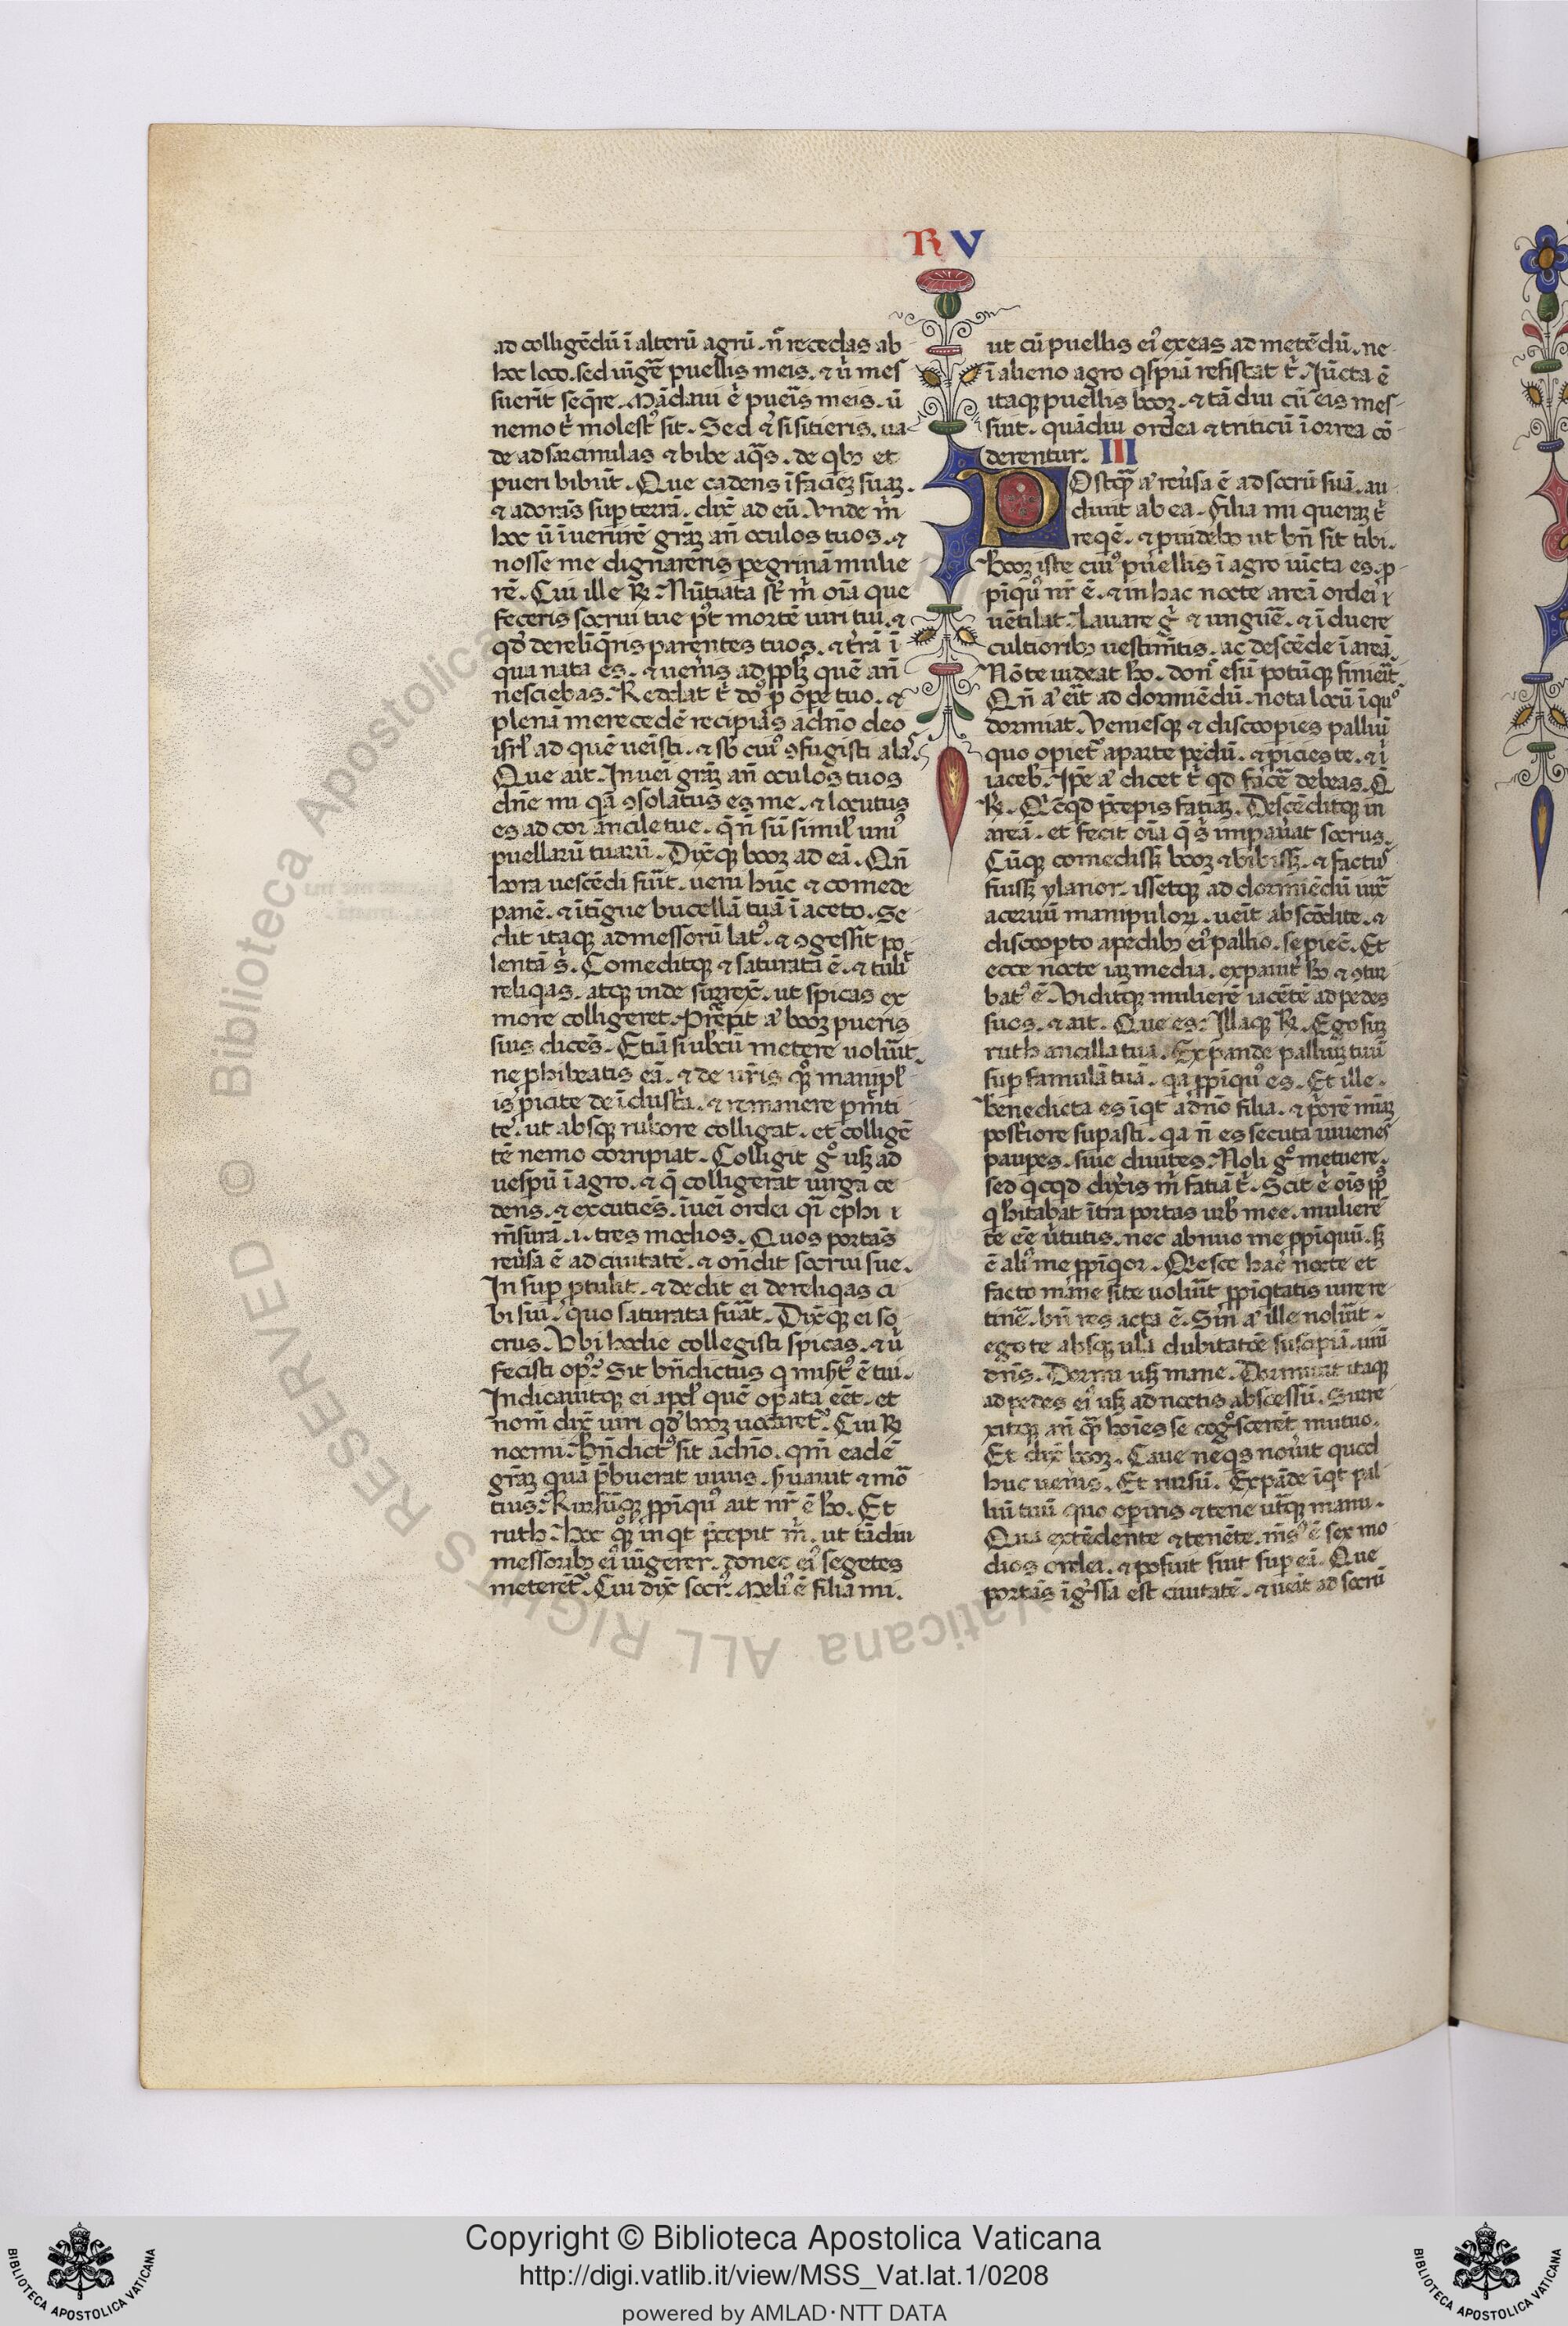 RV
ad colligēdū ī alterū agrū. n̄ recedas ab
hoc loco. sed iūgē puellis meis. ⁊ u̇ mes
suerīt seq̄re. Mādaui ē puerīs meis. ū
nemo t̄ molestꝰ sit. Sed ⁊ si sitieris. ua
de ad sarcinulas ⁊ bibe aq̄s. de qbꝫ et
pueri bibūt. Que cadens ī facieꝫ suaꝫ.
⁊ adorās suꝑ terrā. dix̄ ad eū. Vnde m̄
hoc ū īuenirē grāꝫ an̄ oculos tuos. ⁊
nosse me dignareris peregrinā mulie
rē. Cui ille R̄. Nūtiata st̄ m̄ oīa que
feceris socrui tue pꝰt mortē uiri tui. ⁊
qđ dereliq̄ris parentes tuos. ⁊ t̄rā ī
qua nata es. ⁊ ueneris ad pplꝫ quē an̄
nesciebas. Reddat t̄ doꝰ ꝓ oꝑe tuo. ⁊
plenā merecedē recipias adn̄o deo
isrl̄ ad quē uenīsti. ⁊ sb̄ cuiꝰ ꝯfugisti alaˢ.
Que ait. Inueī grāꝫ an̄ oculos tuos
dn̄e mi qā ꝯsolatus es me. ⁊ locutus
es ad cor ancile tue. q̄ n̄ sū simil̄ uniꝰ
puellarū tuarū. Dix̄qꝫ booz ad eā. Qn̄
hora uescēdi fūīt. ueni huc ⁊ comede
panē. ⁊ ītīgue bucellā tuā ī aceto. Se
dit itaqꝫ ad messorū latꝰ. ⁊ ꝯgessit po
lentā s̄. Comeditqꝫ ⁊ saturata ē. ⁊ tulit
reliqas. atqꝫ inde surrex̄. ut spicas ex
more colligeret. Prēpit a᷒ booz pueris
suis dicēs. Etiā si ūbcū metere uolūīt.
ne ꝓhibeatis eā. ⁊ de ur̄is qꝫ manipl̄
is ꝓicite de īdust̄a. ⁊ remanere ꝑmti
te. ut absqꝫ rubore colligat. et colligē
tē nemo corripiat. Colligit gͦ usqꝫ ad
uesꝑū ī agro. ⁊ q̄ colligerat uirga ce
dens. ⁊ excutiēs. īueī ordei qī ephi i
m̄surā .i. tres modios. Quos portās
reu̇sa ē ad ciuitatē. ⁊ on̄dit socrui sue.
In suꝑ ꝓtulit. ⁊ dedit ei de reliqas ci
bi sui. quo saturata fūāt. Dix̄qꝫ ei so
crus. Vbi hodie collegisti spicas. ⁊ u̇
fecisti opꝰ. Sit bn̄dictus q misꝰtꝰ ē tui.
Indicauitqꝫ ei apd̄ quē oꝑata eēt. et
nom̄ dix̄ uiri qđ booz uocaretꝰ. Cui R̄
noemi. Bn̄dictꝰ sit adn̄o. qm̄ eadē
grāꝫ quā p̄buerat uiuis. s̄uauit ⁊ mo
tuis. Rursūqꝫ ꝓpīquꝰ ait nr̄ ē ho. Et
ruth. Hoc qꝫ in qt p̄cepit m̄. ut tādiu
messoribꝫ eiꝰ iūgerer. donec eiꝰ segetes
meterētꝰ. Cui dix̄ socrꝰ. Meliꝰ ē filia mi.
ut cū puellis eiꝰ exeas ad metēdū. ne
ī alieno agro qspiā resistat t̄. Iūcta ē
itaqꝫ puellis booz. ⁊ tādiu cū eis mes
siuit. quādiu ordea ⁊ triticū ī orrea cō
derentur. III
POstqꝫ a᷒ reu̇sa ē ad socrū suā. au
diuit ab ea. Filia mi queraꝫ t̄
reqē. ⁊ ꝓuidebo ut bn̄ sit tibi.
Booz iste cuiꝰ puellis ī agro iūcta es. ꝓ
pīquꝰ nr̄ ē. ⁊ in hac nocte areā ordei
uētilat. Lauare gͦ ⁊ unguē. ⁊ īduere
cultioribꝫ uestimtīs. ac descēde ī areā.
Nō te uideat ho. donc̄ esū potūqꝫ finieīt.
Qn̄ a᷒ eīt ad dormiēdū. nota locū ī quo
dormiat. Veniesqꝫ ⁊ discoopies palliū
quo opietꝰ aparte pedū. ⁊ ꝓicies te. ⁊ i
iaceb̄. Ip̄e a᷒ dicet t̄ qd facē debeas. Q
R̄. Qͥcqd p̄cepis fatiaꝫ. Descēditqꝫ in
areā. et fecit oīa q̄ s̄ imꝑau̇at socrus.
Cūqꝫ comedissꝫ booz ⁊ bibissꝫ. ⁊ factus
fuissꝫ ylarior. issetqꝫ ad dormiēdū iux̄
aceruū manipuloꝝ. ueīt abscōdite. ⁊
discoopto apedibꝫ eiꝰ pallio. se ꝓiec̄. Et
ecce nocte iaꝫ media. expauit ho ⁊ ꝯtur
batꝰ ē. Viditqꝫ mulierē iacētē ad pedes
suos. ⁊ ait. Que es. Illaqꝫ R̄. Ego suꝫ
ruth ancilla tua. Expande palliuꝫ tuū
suꝑ famulā tuā. qa ꝓpīquꝰ es. Et ille.
benedicta es īqt adn̄o filia. ⁊ p̄orē mīaꝫ
postiore suꝑasti. qa n̄ es secuta iuuenes
pauꝑes. siue diuites. Noli gͦ metuere.
sed qcqd dixis m̄ fatiā t̄. Scit ē oīs ppꝉs
q hitabat ītra portas urb̄ mee. mulierē
te eē u̇tutis. nec abnuo me ꝓpīquū. sꝫ
ē aliꝰ me ꝓpīqor. Qͥesce hac nocte et
facto mane si te uolūīt ꝓpīqtatis iure re
tinē. bn̄ res acta ē. Sin a᷒ ille nolūīt.
ego te absqꝫ ula dubitatōe suscipiā. uiuit
dn̄s. Dormi usqꝫ mane. Dormiuit itaqꝫ
ad pedes eiꝰ usqꝫ ad noctis abscessū. Surre
xitqꝫ an̄ qꝫ hoīes se cogͦscerēt mutuo.
Et dix̄ booz. Caue neqs nou̇it quod
huc ueneris. Et rursū. Expāde īqt pal
liū tuū quo oꝑiris ⁊ tene utqꝫ manu.
Qua extēdente ⁊ tenēte. m̄sꝰ ē sex mo
dios ordei. ⁊ posuit suꝑ eā. Que
portās īgͥssa est ciuitatē. ⁊ ueīt ad socrū
Copyright © Biblioteca Apostolica Vaticana
http://digi.vatlib.it/view/MSS_Vat.lat.1/0208
powered by AMLAD·NTT DATA
BIBLIOTECA APOSTOLICA VATICANA
BIBLIOTECA APOSTOLICA VATICANA
© Biblioteca Apostolica Vaticana ALL RIGHTS RESERVED